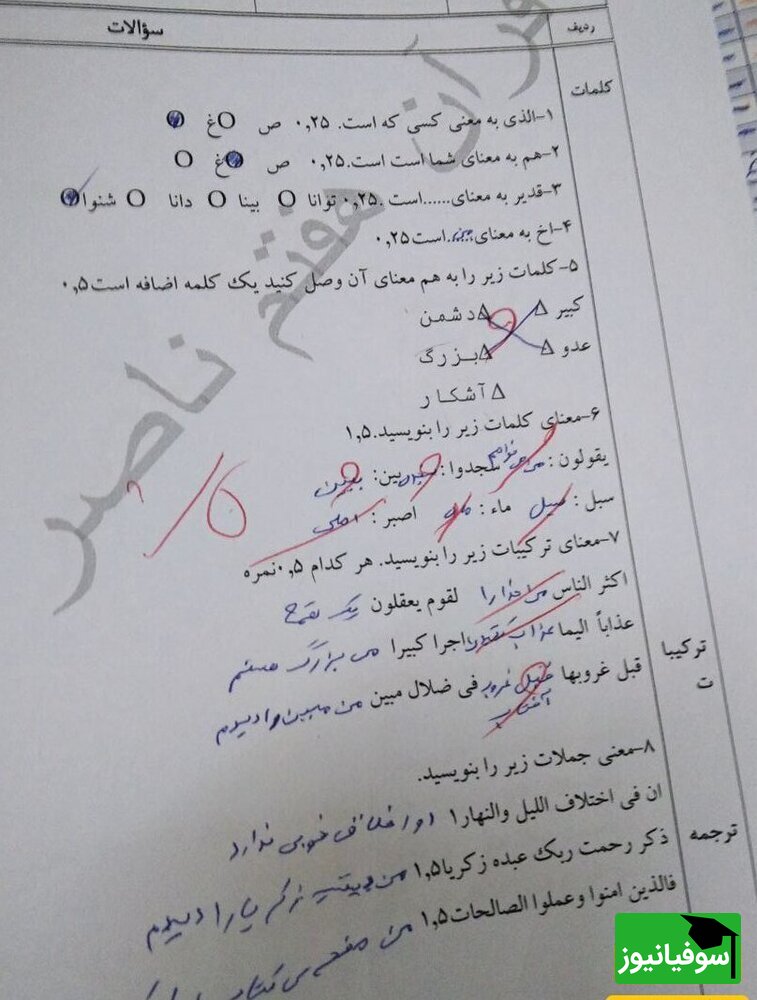 ردیف
سؤالات
کلمات
۱-الذی به معنی کسی که است. ۰,۲۵ ص غ
۲-هم به معنای شما است است.۰,۲۵ ص غ
۳-قدیر به معنای......است .۰,۲۵ توانا بینا دانا شنوا
۴-اخ به معنای......است۰,۲۵
۵-کلمات زیر را به هم معنای آن وصل کنید یک کلمه اضافه است۰,۵
کبیر دشمن
عدو بزرگ
آشکار
۶-معنای کلمات زیر را بنویسید.۱,۵
یقولون: سجدوا: بین:
سبل: ماء: اصبر:
۷-معنای ترکیبات زیر را بنویسید. هر کدام ۰,۵نمره
ترکیبات
اکثر الناس لقوم یعقلون
عذاباً الیما عذاب اجرا کبیرا من بزرگ هستم
قبل غروبها قبل غروب آفتاب فی ضلال مبین من مبین را دیدم
۸-معنی جملات زیر را بنویسید.
ترجمه
ان فی اختلاف اللیل والنهار۱ او اخلاق خوبی ندارد
ذکر رحمت ربک عبده زکریا۱,۵ من زکریا را دیدم
فالذین امنوا وعملوا الصالحات۱,۵ من
قرآن هفتم ناصر
سوفیانیوز